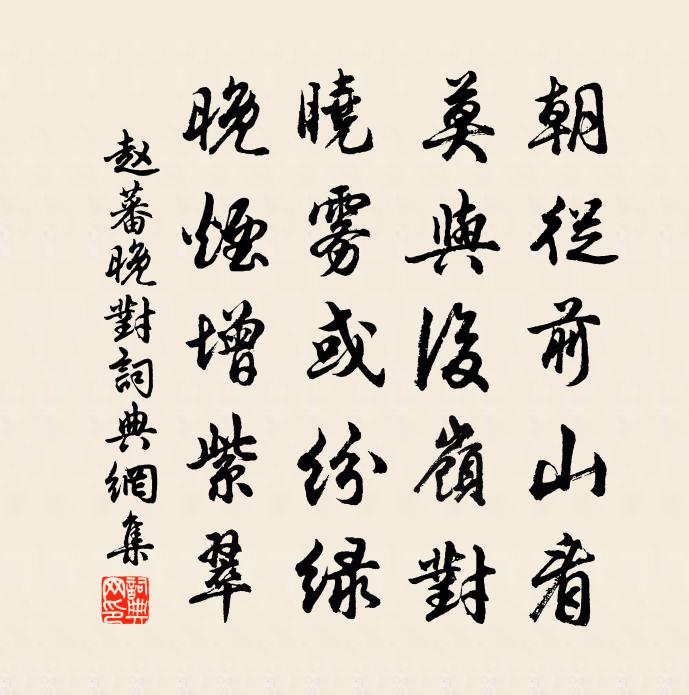 朝從前山看
莫與後嶺對
曉霧或紛綠
晚煙增紫翠
赵蕃晚對詞典網集
詞典網印